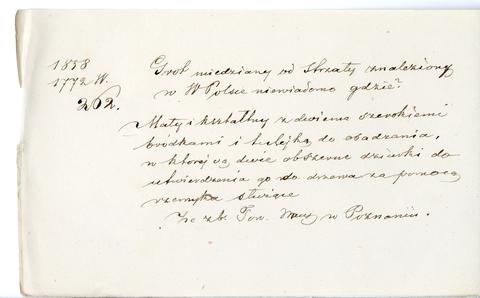 1858
1772 W.
262.
Grot miedziany od strzały znaleziony
w W Polsce niewiadomo gdzie?
Mały i kształtny z dwiema szerokiemi
bródkami i tulejką do obsadzania,
w której są dwie obszerne dziurki do
utwierdzenia go do drzewa za pomocą
rzemyka służące
Ze zb. Tow. w Poznaniu.